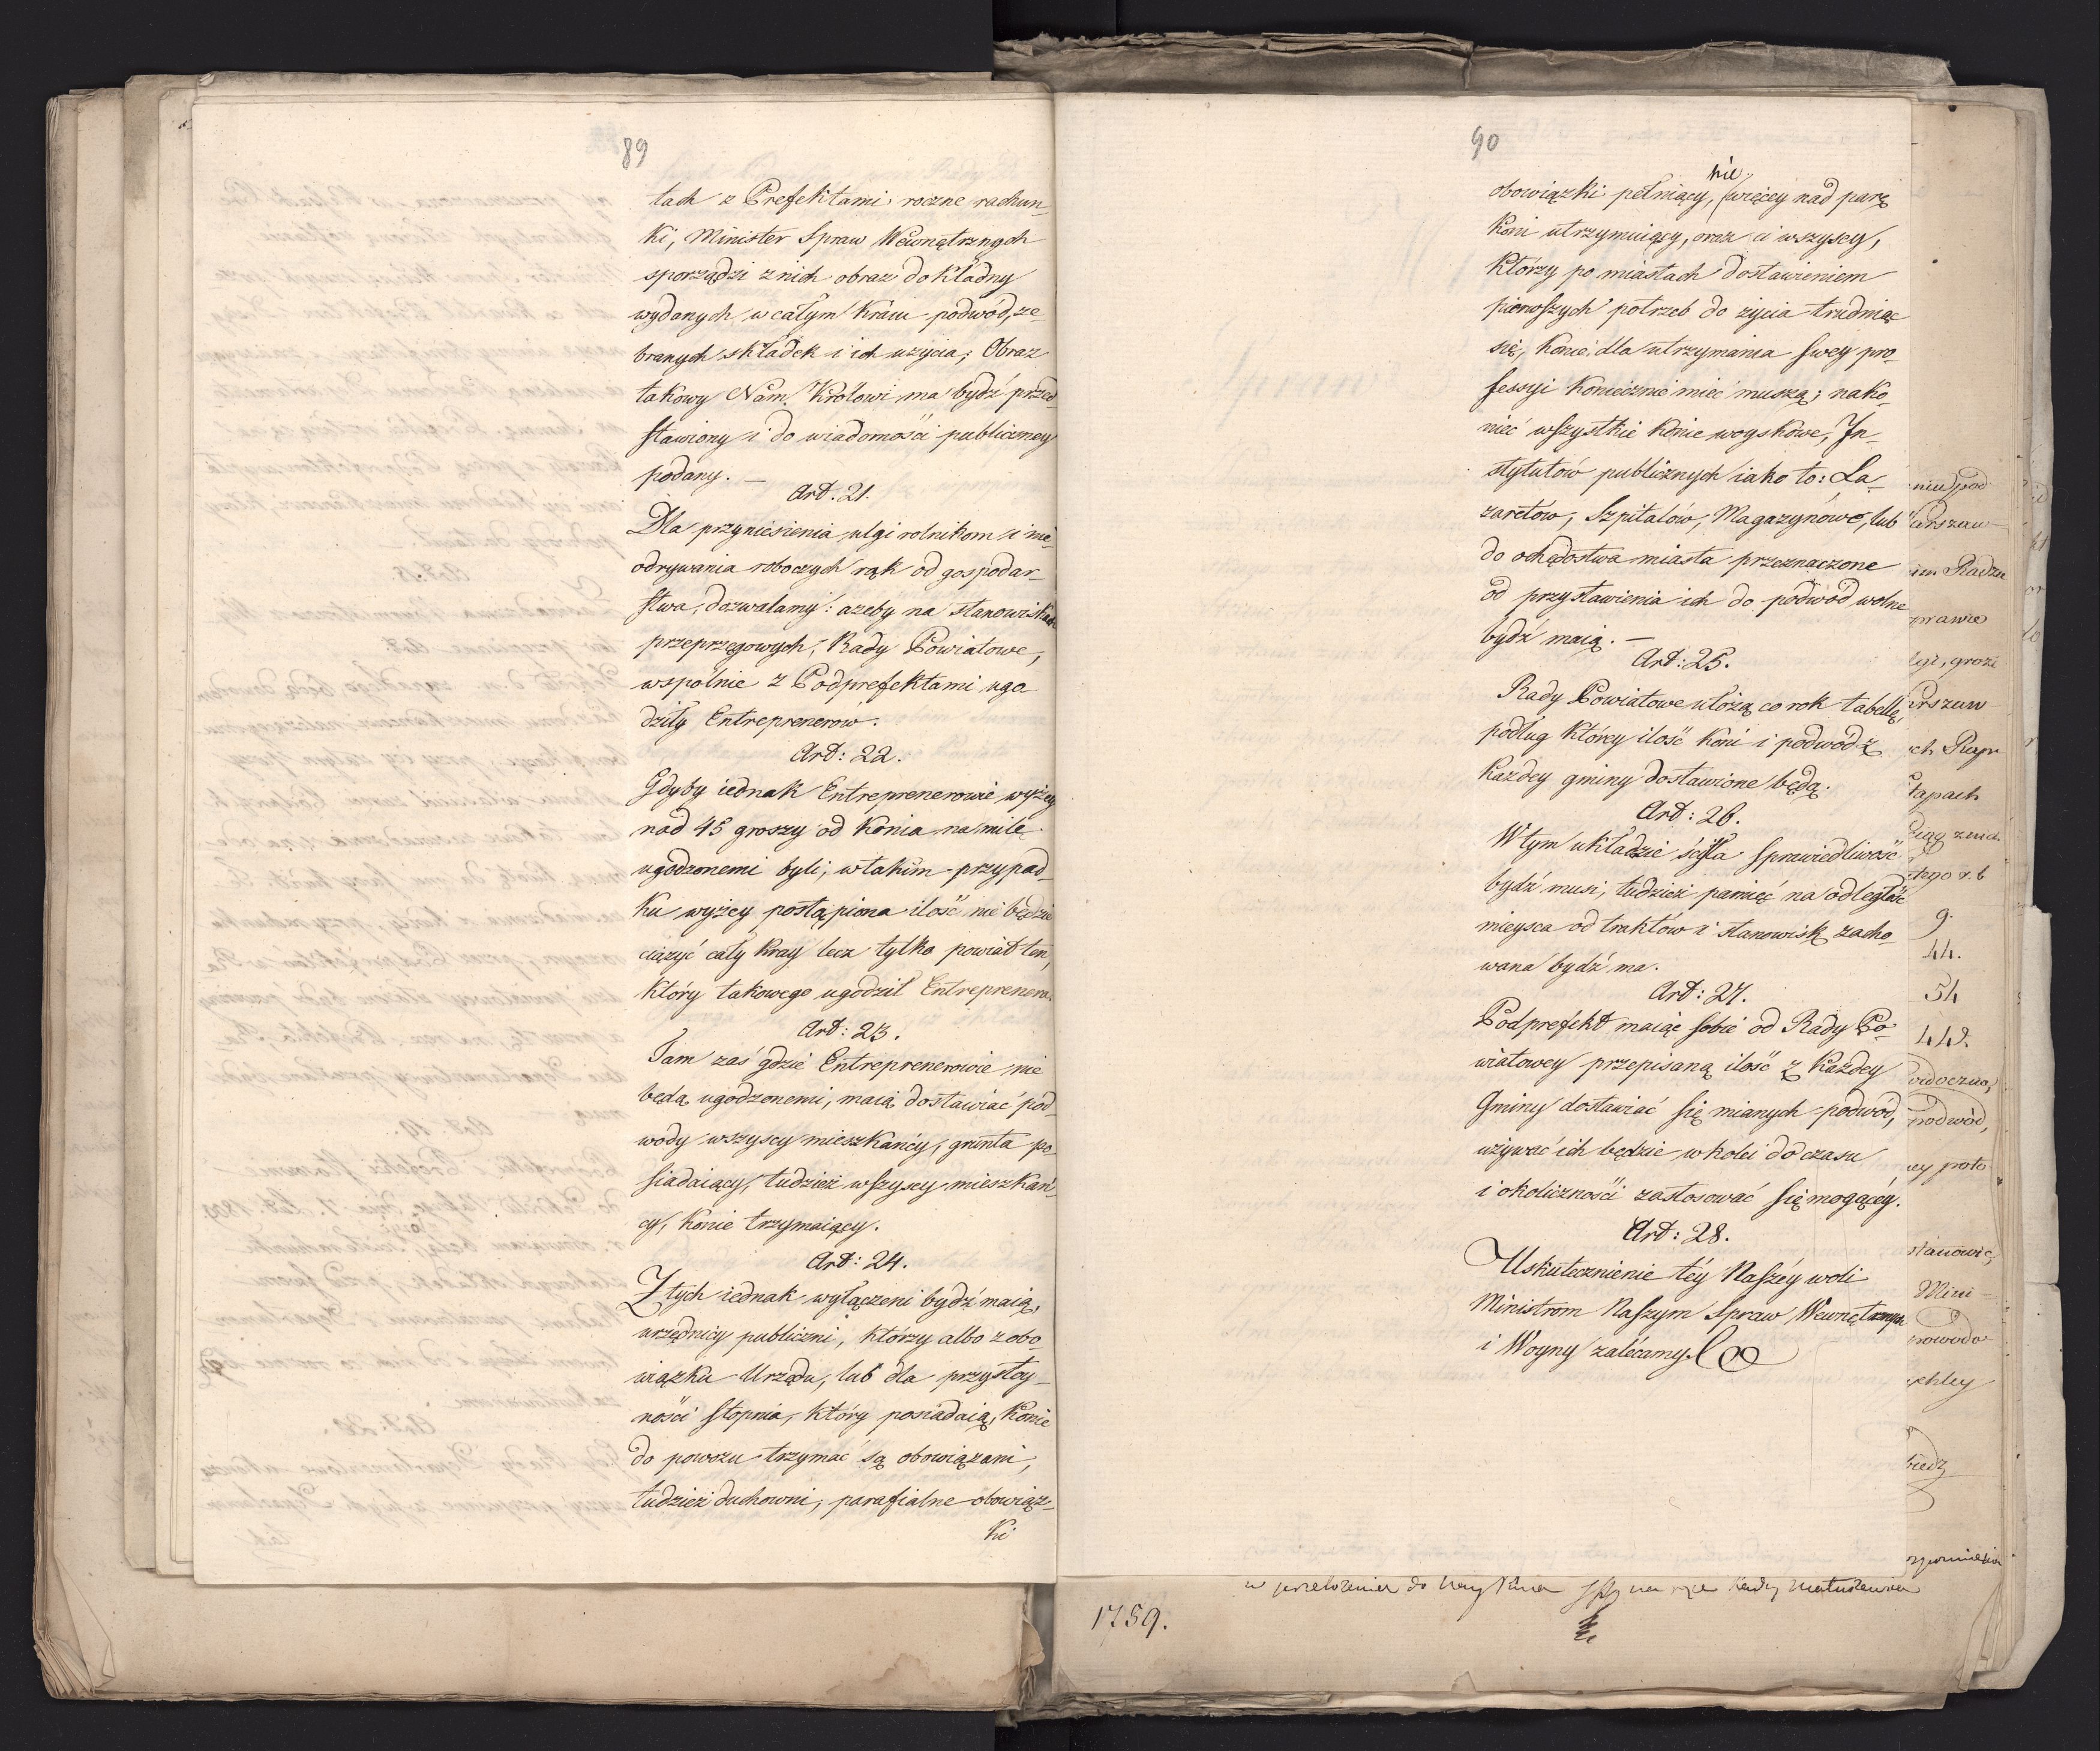 89
tach z Prefektami roczne rachun-
ki, Minister Spraw Wewnętrznych
sporządzi z nich obraz dokładny
wydanych w całym Kraiu podwód, ze-
branych składek i ich użycia; Obraz
takowy Nam Królowi ma bydź przed-
stawiony i do wiadomości publiczney
podany. —
Art. 21.
Dla przyniesienia ulgi rolnikom i nie-
odrywania roboczych rąk od gospodar-
stwa, dozwalamy: ażeby na stanowiskach
przeprzęgowych, Rady Powiatowe,
wspólnie z Podprefektami ugo
dziły Entreprenerów.
Art: 22.
Gdyby iednak Entreprenerowie wyżey
nad 45 groszy od Konia na milę
ugodzonemi byli, w takim przypad-
ku wyżey postąpiona ilość nie będzie
ciążyć cały Kray lecz tylko powiat ten,
który takowego ugodził Entreprenera.
Art: 23.
Tam zaś gdzie Entreprenerowie nie
będą ugodzonemi, maią dostawiać pod-
wody wszyscy mieszkańcy, grunta po-
siadaiący, tudzież wszyscy mieszkań-
cy, Konie trzymaiący.
Art: 24.
Z tych iednak wyłączeni bydź maią,
urzędnicy publiczni, którzy albo z obo-
wiązku Urzędu, lub dla przystoy-
ności stopnia, który posiadaią, Konie
do powozu trzymać są obowiązani,
tudzież duchowni, parafialne obowiąz-
ki
90
nie
obowiązki pełniący, więcey nad parę
Koni utrzymuiący, oraz ci wszyscy,
Którzy po miastach dostawieniem
pierwszych potrzeb do życia trudniąc
się, Konie dla utrzymania swey pro-
fessyi Koniecznie mieć muszą; nako-
niec wszystkie Konie woyskowe, In-
stytutów publicznych iako to: La-
zaretów, Szpitalów, Magazynowe, lub
do ochędostwa miasta przeznaczone
od przystawienia ich do podwód wolne
bydź maią. —
Art: 25.
Rady Powiatowe ułożą co rok tabellę,
podług którey ilość Koni i podwód z
Każdey gminy dostawione będą.
Art: 26.
W tym układzie ścisła sprawiedliwość
bydź musi, tudzież pamięć na odległość
mieysca od traktów i stanowisk zacho-
wana bydź ma.
Art: 27.
Podprefekt maiąc sobie od Rady Po-
wiatowey przepisaną ilość z Każdey
Gminy dostawiać się mianych podwód,
używać ich będzie w kolei do czasu
i okoliczności zastosować się mogącéy.
Art: 28.
Uskutecznienie téy Naszéy woli
Ministrom Naszym Spraw Wewnętrznych
i Woyny zalécamy.
9.
44.
54
podwód,
stanowić,
Mini-
1759.